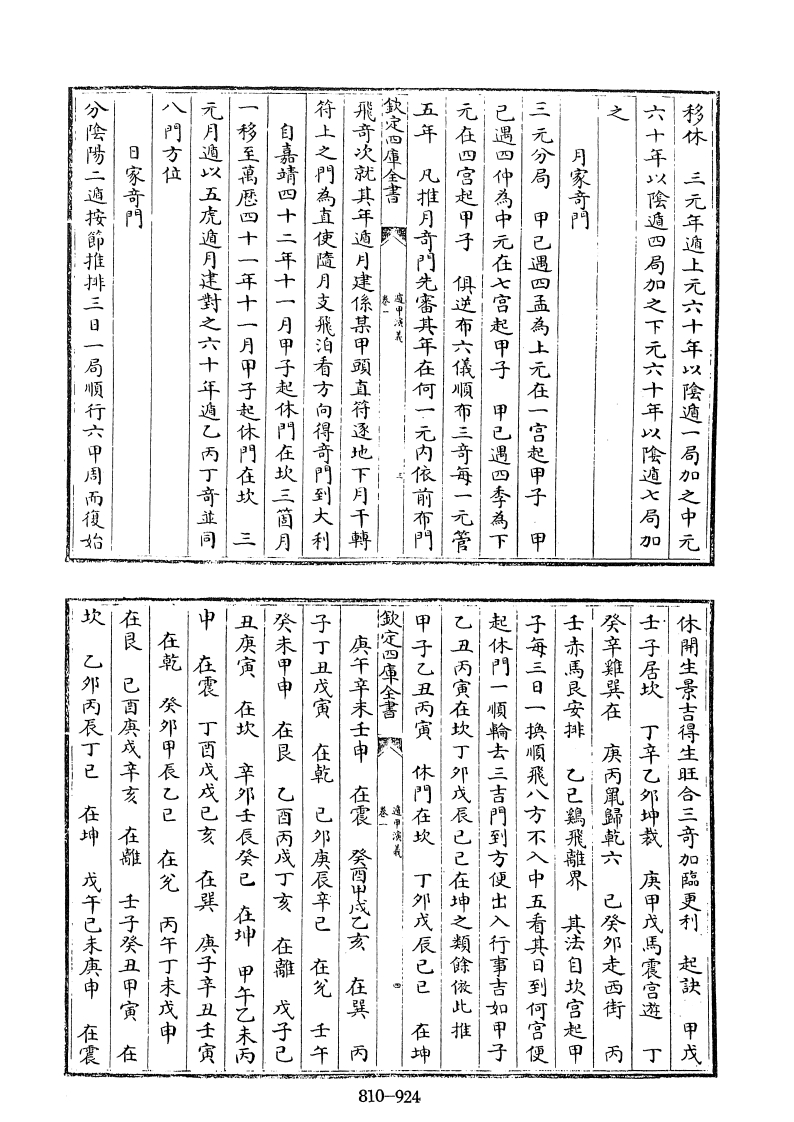 移休　三元年遁上元六十年以陰遁一局加之中元
六十年以陰遁四局加之下元六十年以陰遁七局加
之
月家奇門
三元分局　甲己遇四孟為上元在一宫起甲子　甲
己遇四仲為中元在七宫起甲子　甲己遇四季為下
元在四宫起甲子　俱逆布六儀順布三奇每一元管
五年　凡推月奇門先審其年在何一元内依前布門
欽定四庫全書
遁甲演義
卷一
三
飛奇次就其年遁月建係某甲頭直符逐地下月干轉
符上之門為直使隨月支飛泊看方向得奇門到大利
自嘉靖四十二年十一月甲子起休門在坎三箇月
一移至萬厯四十一年十一月甲子起休門在坎　三
元月遁以五虎遁月建對之六十年遁乙丙丁奇並同
八門方位
日家奇門
分陰陽二遁按節推排三日一局順行六甲周而復始
休開生景吉得生旺合三奇加臨更利　起訣　甲戊
壬子居坎　丁辛乙卯坤裁　庚甲戊馬震宫遊　丁
癸辛雞巽在　庚丙䑕歸乾六　己癸卯走西街　丙
壬赤馬艮安排　乙己鷄飛離界　其法自坎宫起甲
子每三日一換順飛八方不入中五看其日到何宫便
起休門一順輪去三吉門到方便出入行事吉如甲子
乙丑丙寅在坎丁卯戊辰己巳在坤之類餘倣此推
甲子乙丑丙寅　休門在坎　丁卯戊辰己巳　在坤
欽定四庫全書
遁甲演義
卷一
四
庚午辛未壬申　在震　癸酉甲戌乙亥　在巽　丙
子丁丑戊寅　在乾　己卯庚辰辛巳　在兊　壬午
癸未甲申　在艮　乙酉丙戌丁亥　在離　戊子己
丑庚寅　在坎　辛卯壬辰癸巳　在坤　甲午乙未丙
申　在震　丁酉戊戌己亥　在巽　庚子辛丑壬寅
在乾　癸卯甲辰乙巳　在兊　丙午丁未戊申
在艮　己酉庚戌辛亥　在離　壬子癸丑甲寅　在
坎　乙卯丙辰丁巳　在坤　戊午己未庚申　在震
810-924